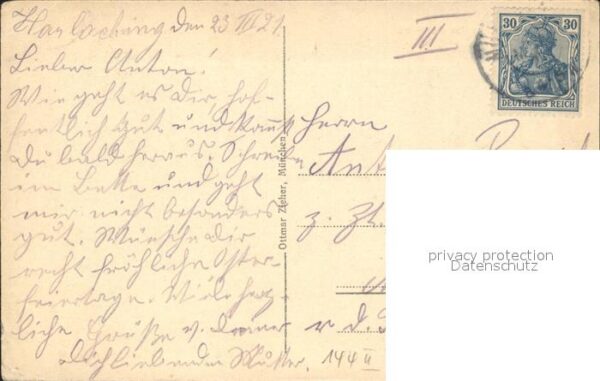 Harlaching den 23 III 21
Lieber Anton!
Wie geht es Dir, hof-
fentlich gut und kannst
Du bald heraus. Schreibe
im Bette und geht
mir nicht besonders
gut. Wünsche Dir
recht fröhliche Oster-
feiertage. Viele herz-
liche Grüße v. deiner
dichliebenden Mutter.
Ottmar Zieher, München
III
30 30
DEUTSCHES REICH
Herrn
z. Zt.
144 II
privacy protection
Datenschutz